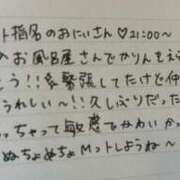 ト指名のおにいさん♡21:00〜
のお風呂屋さんでかりんをえ
う!!緊張してたけど仲
うれしい〜!!久しぶりだった
っちゃって敏感でかわいかっ
ぬちょぬちょMットしようね〜